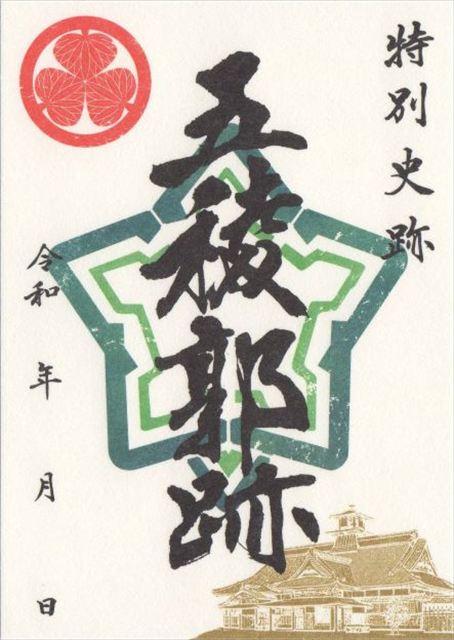 特別史跡
五稜郭跡
令和　年　月　日